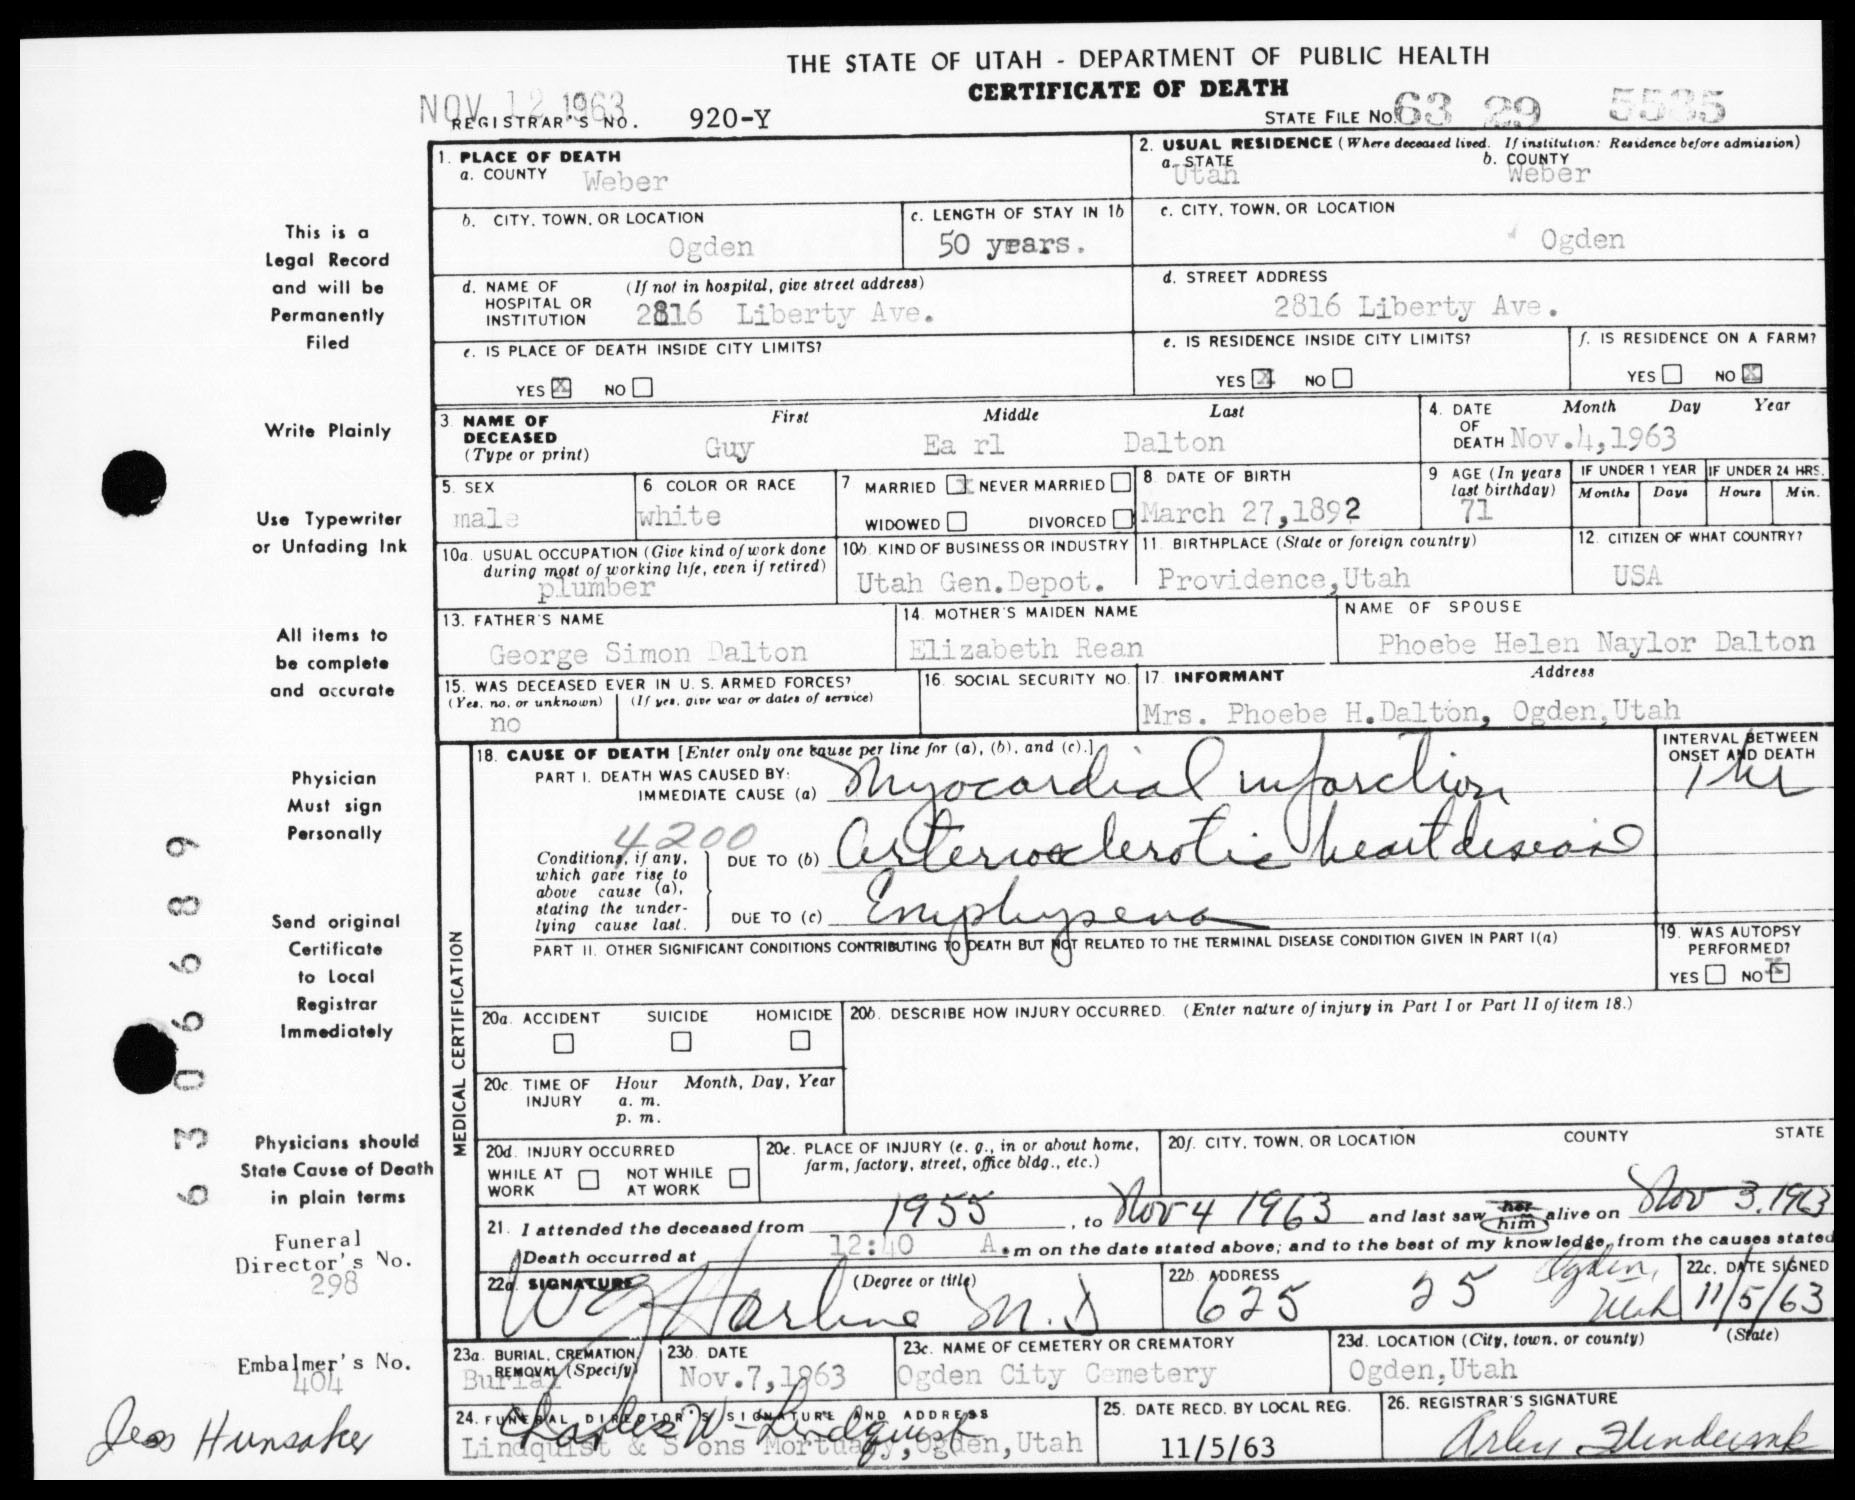 THE STATE OF UTAH - DEPARTMENT OF PUBLIC HEALTH
CERTIFICATE OF DEATH
NOV 12 1963
REGISTRAR'S NO. 920-Y
STATE FILE NO. 63 29 5535
1. PLACE OF DEATH
a. COUNTY Weber
2. USUAL RESIDENCE (Where deceased lived. If institution: Residence before admission)
a. STATE Utah
b. COUNTY Weber
b. CITY, TOWN, OR LOCATION Ogden
c. LENGTH OF STAY IN 1b 50 years.
c. CITY, TOWN, OR LOCATION Ogden
d. NAME OF HOSPITAL OR INSTITUTION (If not in hospital, give street address)
2816 Liberty Ave.
d. STREET ADDRESS
2816 Liberty Ave.
e. IS PLACE OF DEATH INSIDE CITY LIMITS?
YES X NO
e. IS RESIDENCE INSIDE CITY LIMITS?
YES X NO
f. IS RESIDENCE ON A FARM?
YES NO X
3 NAME OF DECEASED (Type or print)
First Middle Last
Guy Ea rl Dalton
4. DATE OF DEATH Month Day Year
Nov.4,1963
5. SEX male
6 COLOR OR RACE white
7 MARRIED X NEVER MARRIED
WIDOWED DIVORCED
8. DATE OF BIRTH
March 27,1892
9 AGE (In years last birthday) 71
IF UNDER 1 YEAR Months Days
IF UNDER 24 HRS. Hours Min.
10a. USUAL OCCUPATION (Give kind of work done during most of working life, even if retired)
plumber
10b. KIND OF BUSINESS OR INDUSTRY
Utah Gen.Depot.
11. BIRTHPLACE (State or foreign country)
Providence,Utah
12. CITIZEN OF WHAT COUNTRY?
USA
13. FATHER'S NAME
George Simon Dalton
14. MOTHER'S MAIDEN NAME
Elizabeth Rean
NAME OF SPOUSE
Phoebe Helen Naylor Dalton
15. WAS DECEASED EVER IN U. S. ARMED FORCES?
(Yes, no, or unknown) (If yes, give war or dates of service)
no
16. SOCIAL SECURITY NO.
17. INFORMANT Address
Mrs. Phoebe H.Dalton, Ogden,Utah
MEDICAL CERTIFICATION
18. CAUSE OF DEATH [Enter only one cause per line for (a), (b), and (c).]
INTERVAL BETWEEN ONSET AND DEATH
PART I. DEATH WAS CAUSED BY:
IMMEDIATE CAUSE (a) Myocardial infarction 1 hr
4200
Conditions, if any, which gave rise to above cause (a), stating the underlying cause last.
DUE TO (b) Arteriosclerotic heart disease
DUE TO (c) Emphysema
PART II. OTHER SIGNIFICANT CONDITIONS CONTRIBUTING TO DEATH BUT NOT RELATED TO THE TERMINAL DISEASE CONDITION GIVEN IN PART I(a)
19. WAS AUTOPSY PERFORMED?
YES NO X
20a. ACCIDENT SUICIDE HOMICIDE
20b. DESCRIBE HOW INJURY OCCURRED. (Enter nature of injury in Part I or Part II of item 18.)
20c. TIME OF INJURY Hour Month, Day, Year
a. m.
p. m.
20d. INJURY OCCURRED
WHILE AT WORK NOT WHILE AT WORK
20e. PLACE OF INJURY (e. g., in or about home, farm, factory, street, office bldg., etc.)
20f. CITY, TOWN, OR LOCATION COUNTY STATE
21. I attended the deceased from 1955, to Nov 4 1963 and last saw her him alive on Nov 3, 1963
Death occurred at 12:40 A.m on the date stated above; and to the best of my knowledge, from the causes stated
22a. SIGNATURE (Degree or title)
W G Harline M.D
22b. ADDRESS
625 25 Ogden, Utah
22c. DATE SIGNED
11/5/63
23a. BURIAL, CREMATION, REMOVAL (Specify)
Burial
23b. DATE
Nov.7,1963
23c. NAME OF CEMETERY OR CREMATORY
Ogden City Cemetery
23d. LOCATION (City, town, or county) (State)
Ogden,Utah
24. FUNERAL DIRECTOR'S SIGNATURE AND ADDRESS
Charles W. Lindquist
Lindquist & Sons Mortuary,Ogden,Utah
25. DATE RECD. BY LOCAL REG.
11/5/63
26. REGISTRAR'S SIGNATURE
This is a
Legal Record
and will be
Permanently
Filed
Write Plainly
Use Typewriter
or Unfading Ink
All items to
be complete
and accurate
Physician
Must sign
Personally
Send original
Certificate
to Local
Registrar
Immediately
Physicians should
State Cause of Death
in plain terms
Funeral
Director's No.
298
Embalmer's No.
404
Jess Hunsaker
63066689